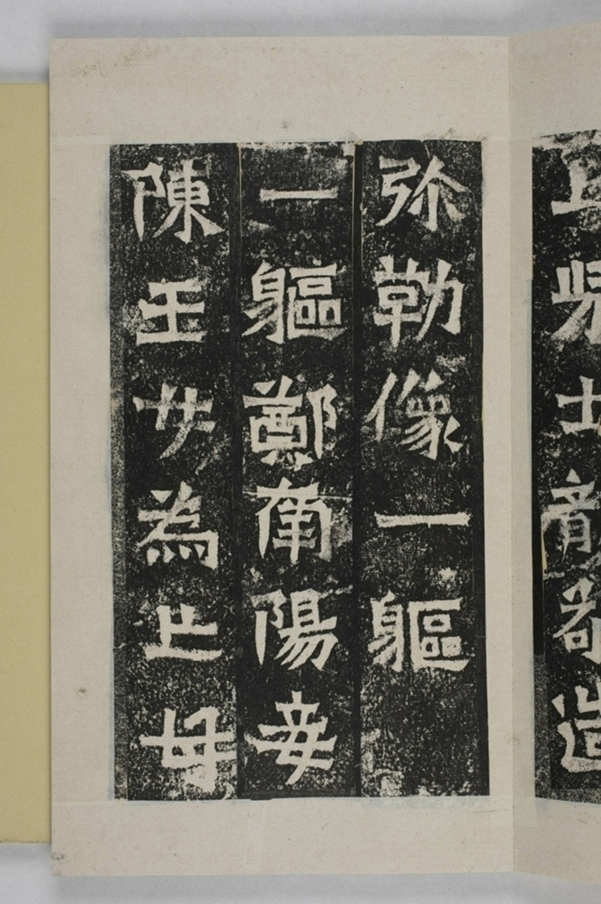 造
弥勒像一軀
一軀鄭南陽妾
陳玉女為亡母